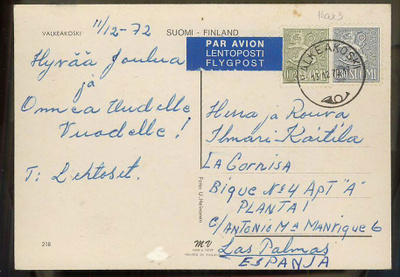 11/12-72
VALKEAKOSKI
SUOMI - FINLAND
PAR AVION
LENTOPOSTI
FLYGPOST
VALKEAKOSKI
SUOMI
Hyvää Joulua
ja
Onnea Uudelle
Vuodelle!
T: Lehtoset.
Herra ja Rouva
Ilmari Kaitila
LA CORNISA
BIQUE Nº 4 APT "A"
PLANTA 1
C/ANTONIO Mª Manrique 6
Las Palmas
ESPANJA
218
MV